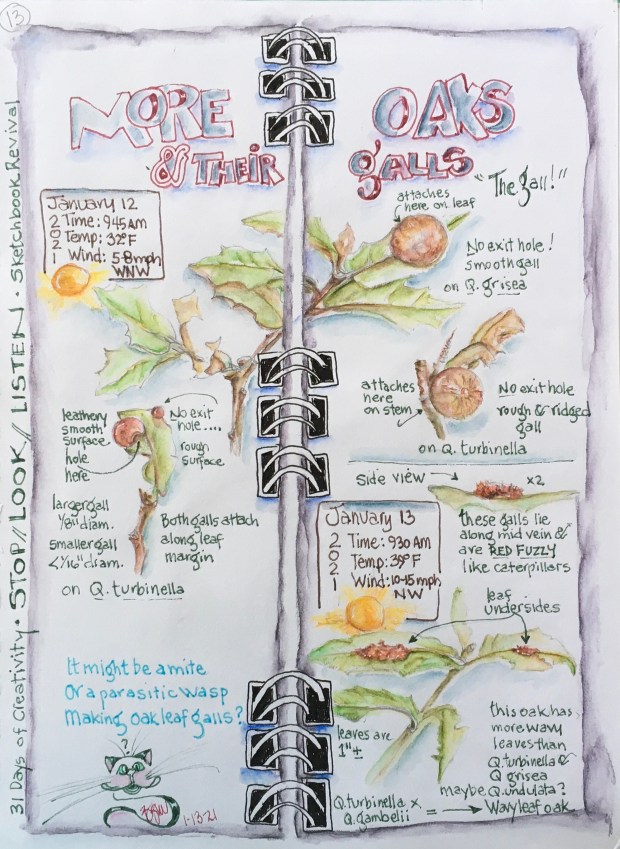 13
31 Days of Creativity • STOP // LOOK // LISTEN • Sketchbook Revival
MORE OAKS
& THEIR galls
January 12
2021
Time: 945 AM
Temp: 32°F
Wind: 5-8 mph
WNW
attaches
here on leaf
"The gall!"
No exit hole!
smooth gall
on Q. grisea
attaches
here
on stem
No exit hole
rough & ridged
gall
on Q. turbinella
leathery
smooth
surface
hole
here
No exit
hole....
rough
surface
larger gall
1/8" diam.
smaller gall
<1/16" diam.
Both galls attach
along leaf
margin
on Q. turbinella
side view
x2
January 13
2021
Time: 930 AM
Temp: 39°F
Wind: 10-15 mph
NW
these galls lie
along mid vein &
are RED FUZZY
like caterpillars
leaf
undersides
It might be a mite
Or a parasitic wasp
Making oak leaf galls?
?
1-13-21
leaves are
1" ±
this oak has
more wavy
leaves than
Q. turbinella &
Q grisea
maybe Q. undulata?
Q. turbinella x
Q. gambelii
= Wavy leaf oak